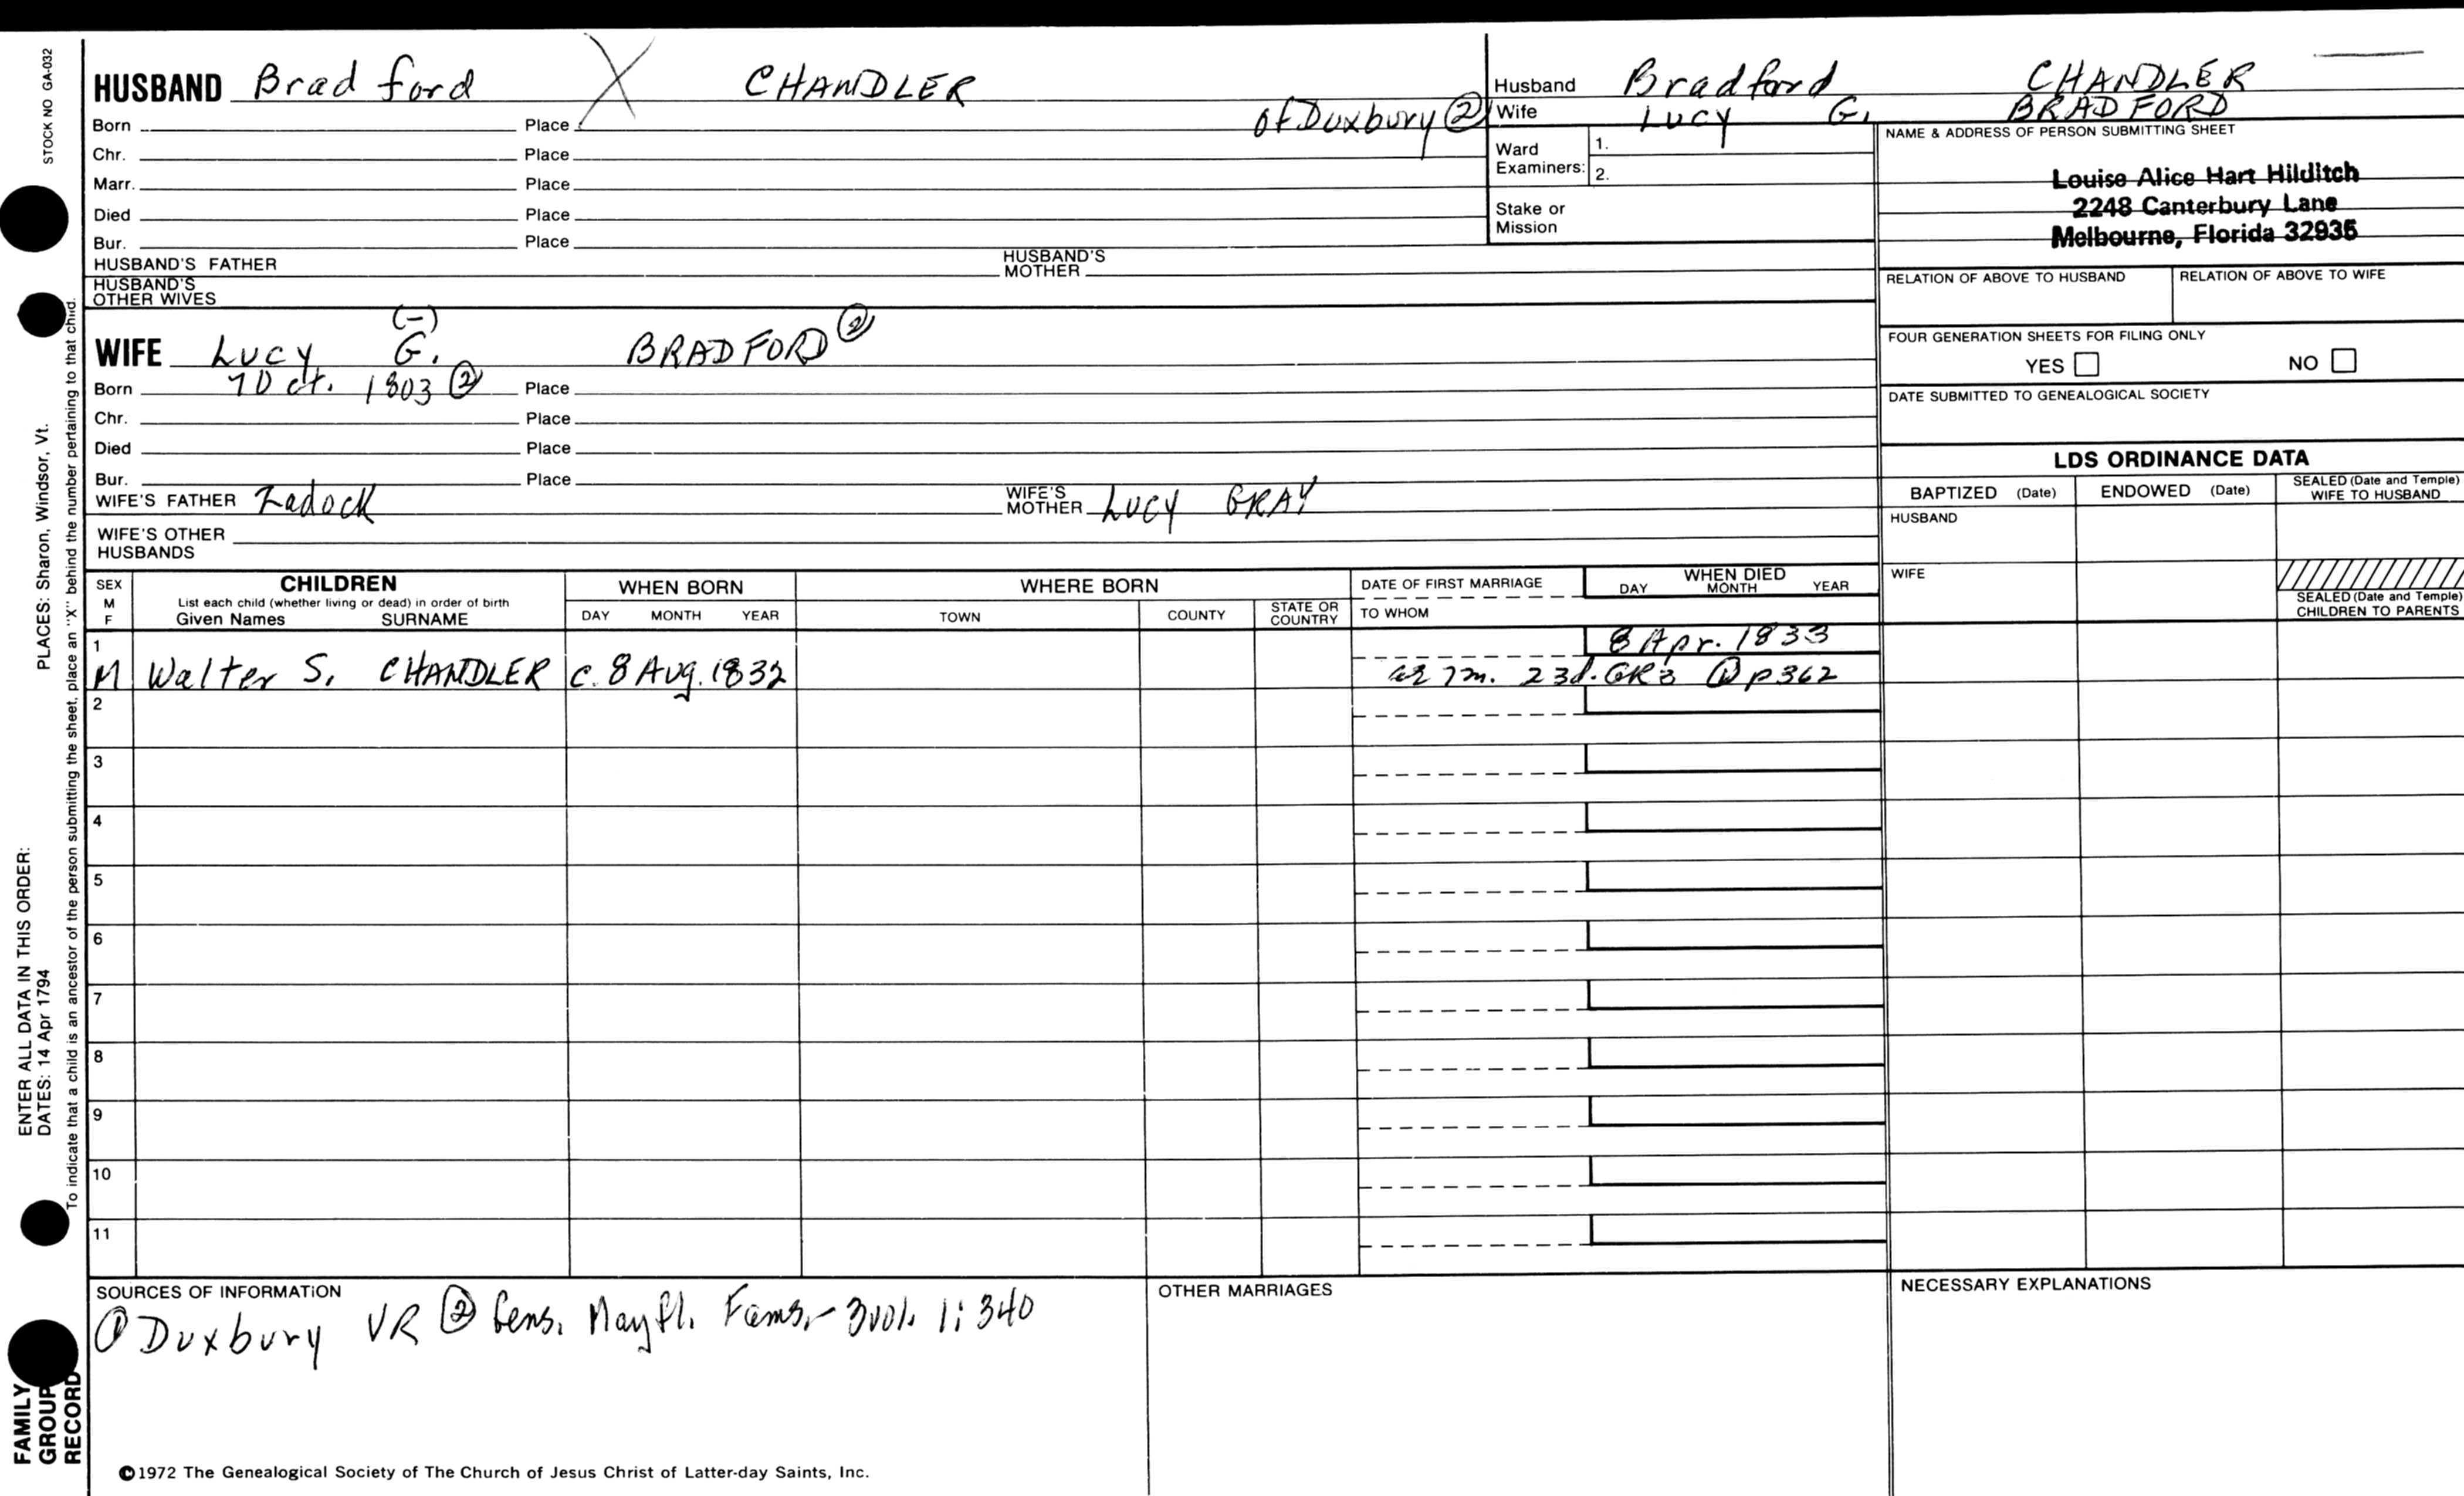 STOCK NO GA-032
HUSBAND Bradford X CHANDLER
Born Place of Duxbury ②
Chr. Place
Marr. Place
Died Place
Bur. Place
HUSBAND'S FATHER HUSBAND'S MOTHER
HUSBAND'S OTHER WIVES
Husband Bradford CHANDLER
Wife Lucy G. BRADFORD
Ward Examiners: 1.
2.
Stake or Mission
NAME & ADDRESS OF PERSON SUBMITTING SHEET
Louise Alice Hart Hilditch
2248 Canterbury Lane
Melbourne, Florida 32935
RELATION OF ABOVE TO HUSBAND RELATION OF ABOVE TO WIFE
FOUR GENERATION SHEETS FOR FILING ONLY
YES NO
DATE SUBMITTED TO GENEALOGICAL SOCIETY
(-)
WIFE Lucy G. BRADFORD ②
Born 7 Oct. 1803 ② Place
Chr. Place
Died Place
Bur. Place
WIFE'S FATHER Zadock WIFE'S MOTHER Lucy GRAY
WIFE'S OTHER HUSBANDS
LDS ORDINANCE DATA
BAPTIZED (Date) ENDOWED (Date) SEALED (Date and Temple) WIFE TO HUSBAND
HUSBAND
WIFE
SEALED (Date and Temple) CHILDREN TO PARENTS
SEX M F
CHILDREN
List each child (whether living or dead) in order of birth
Given Names SURNAME
WHEN BORN
DAY MONTH YEAR
WHERE BORN
TOWN COUNTY STATE OR COUNTRY
DATE OF FIRST MARRIAGE
TO WHOM
WHEN DIED
DAY MONTH YEAR
1 8 Apr. 1833
M Walter S. CHANDLER c. 8 Aug. 1832 ae 7m. 23d. GR3 ① p362
2
3
4
5
6
7
8
9
10
11
SOURCES OF INFORMATION
① Duxbury VR ② Gens. Mayfl. Fams.- 3vol. 1: 340
OTHER MARRIAGES
NECESSARY EXPLANATIONS
©1972 The Genealogical Society of The Church of Jesus Christ of Latter-day Saints, Inc.
FAMILY GROUP RECORD
ENTER ALL DATA IN THIS ORDER:
DATES: 14 Apr 1794
PLACES: Sharon, Windsor, Vt.
To indicate that a child is an ancestor of the person submitting the sheet, place an "X" behind the number pertaining to that child.